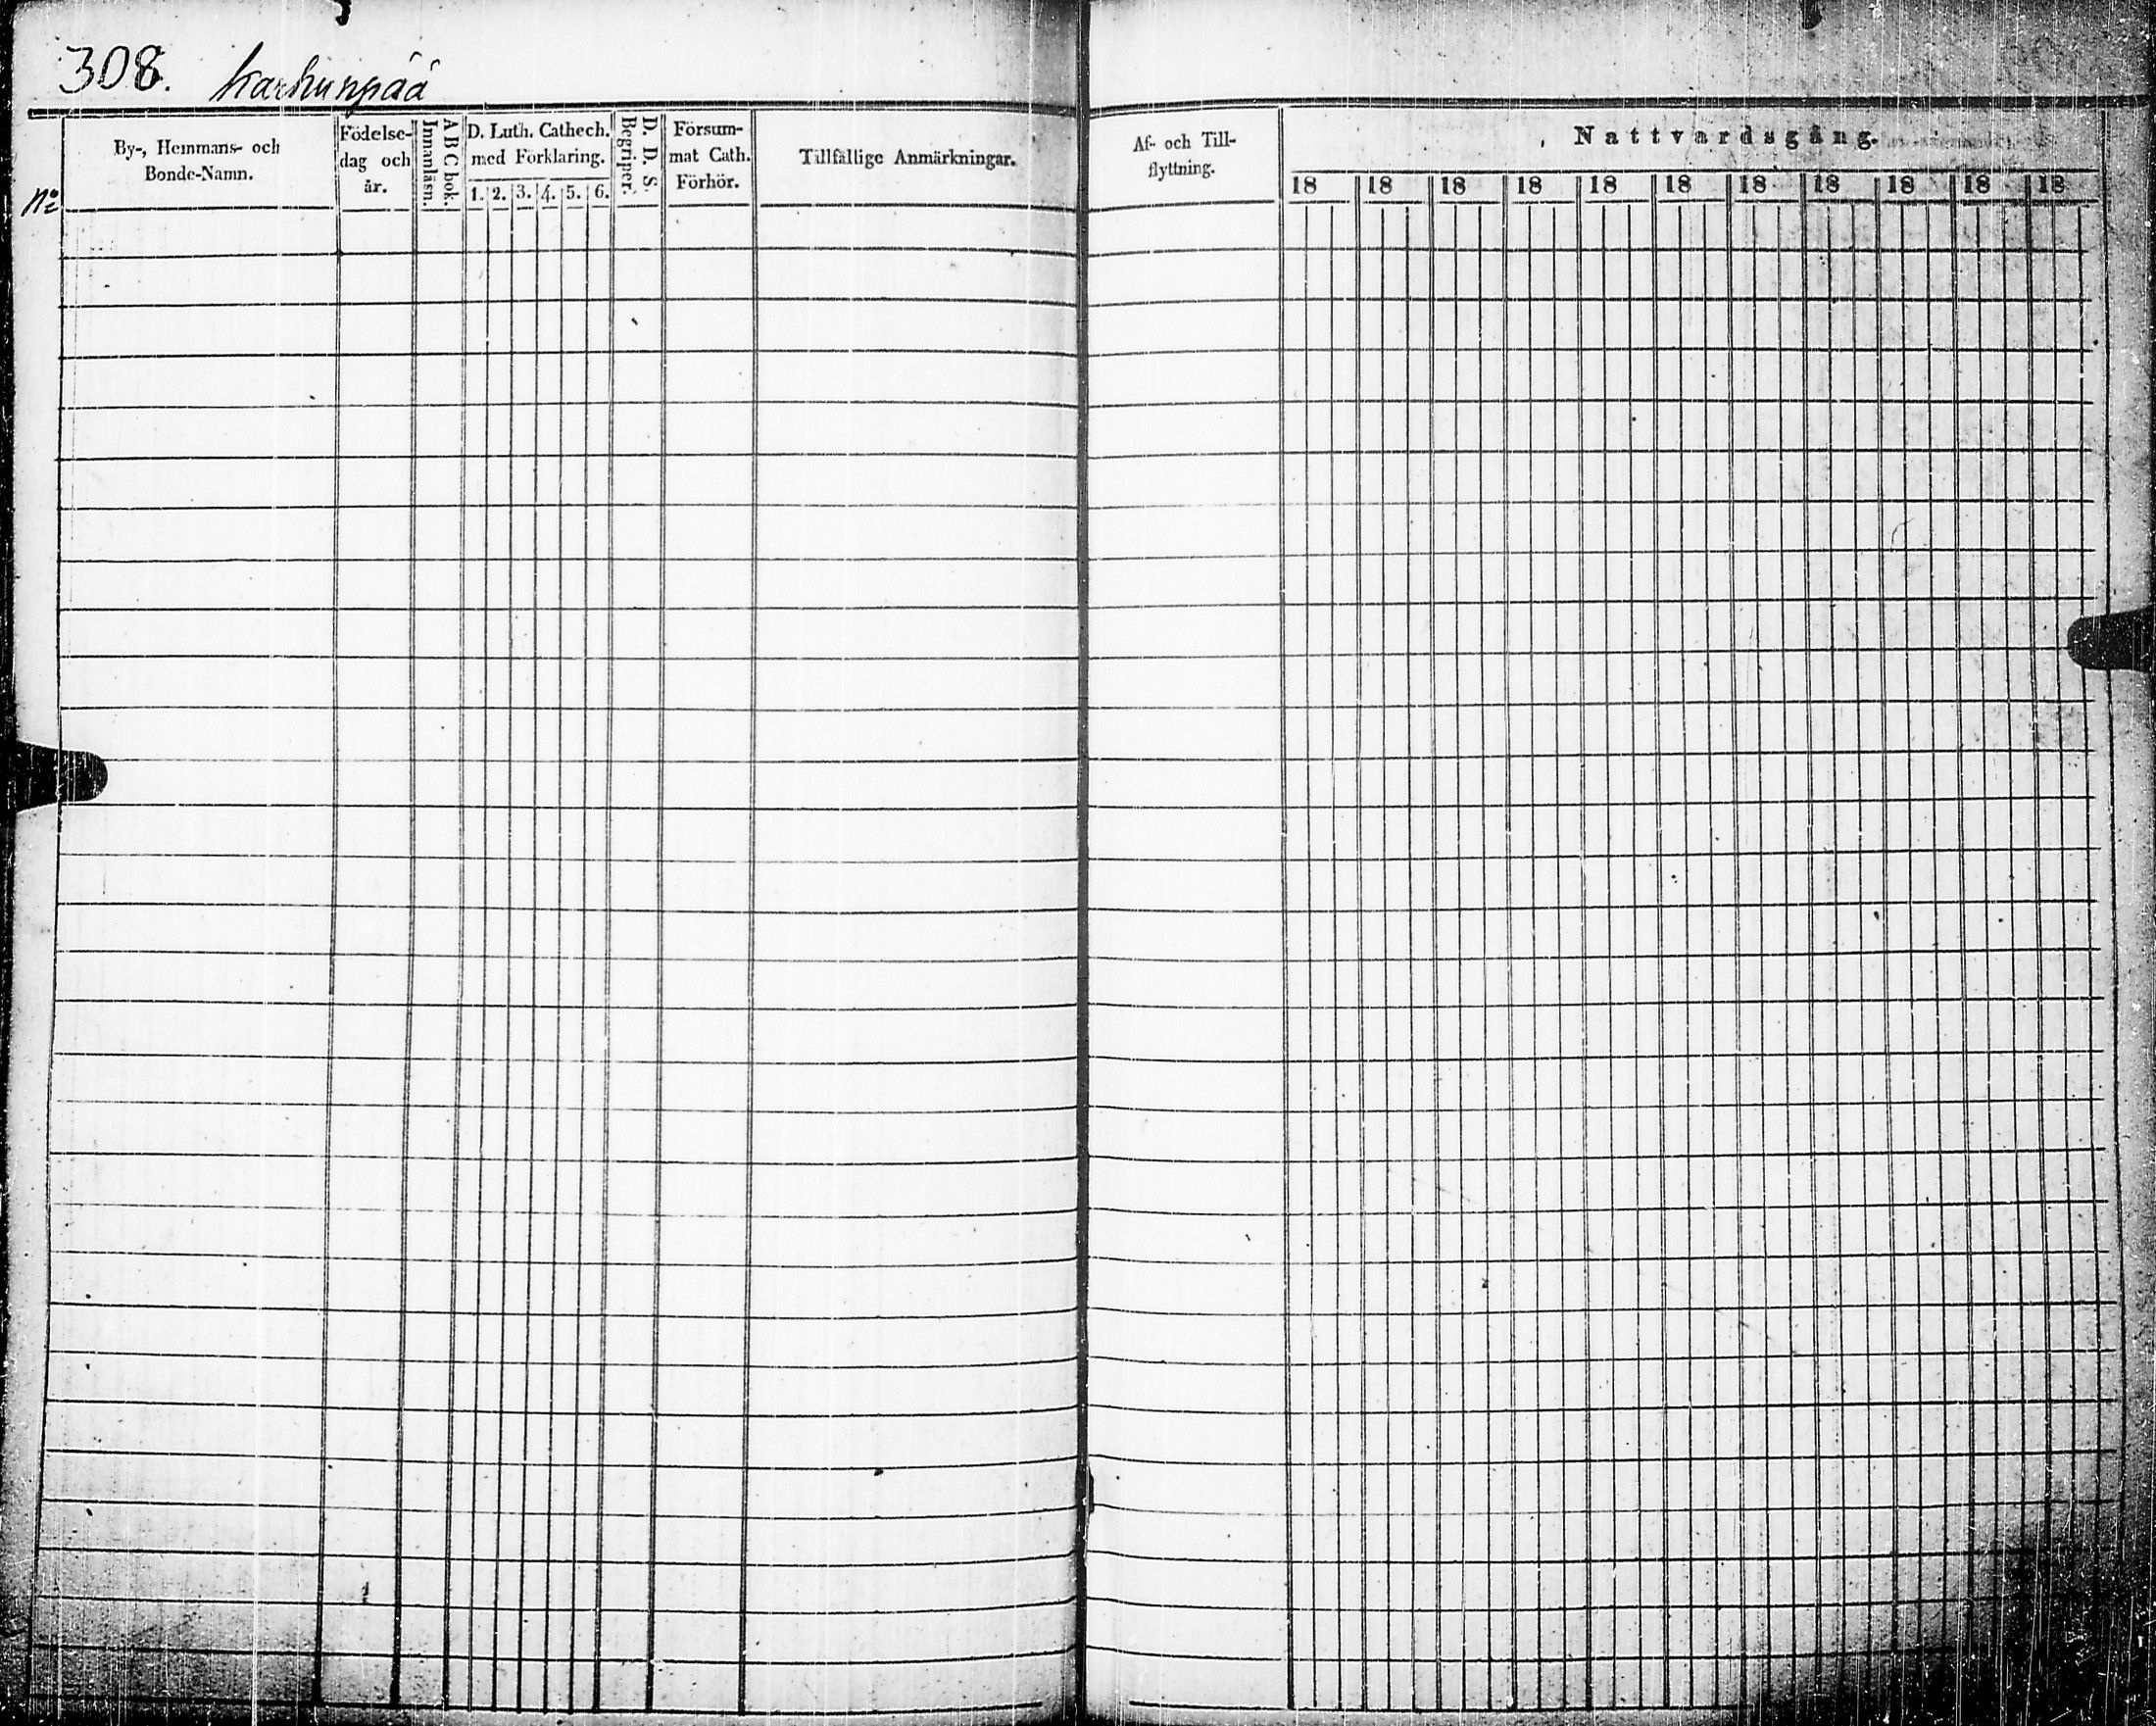 308. Karhunpää
No
By-, Hemmans- och
Bonde-Namn.
Födelse-
dag och
år.
Innanläsn.
A B C bok.
D. Luth. Cathech.
med Förklaring.
1. 2. 3. 4. 5. 6.
Begriper.
D. D. S.
Försum-
mat Cath.
Förhör.
Tillfällige Anmärkningar.
Af- och Till-
flyttning.
Nattvardsgång.
18 18 18 18 18 18 18 18 18 18 18